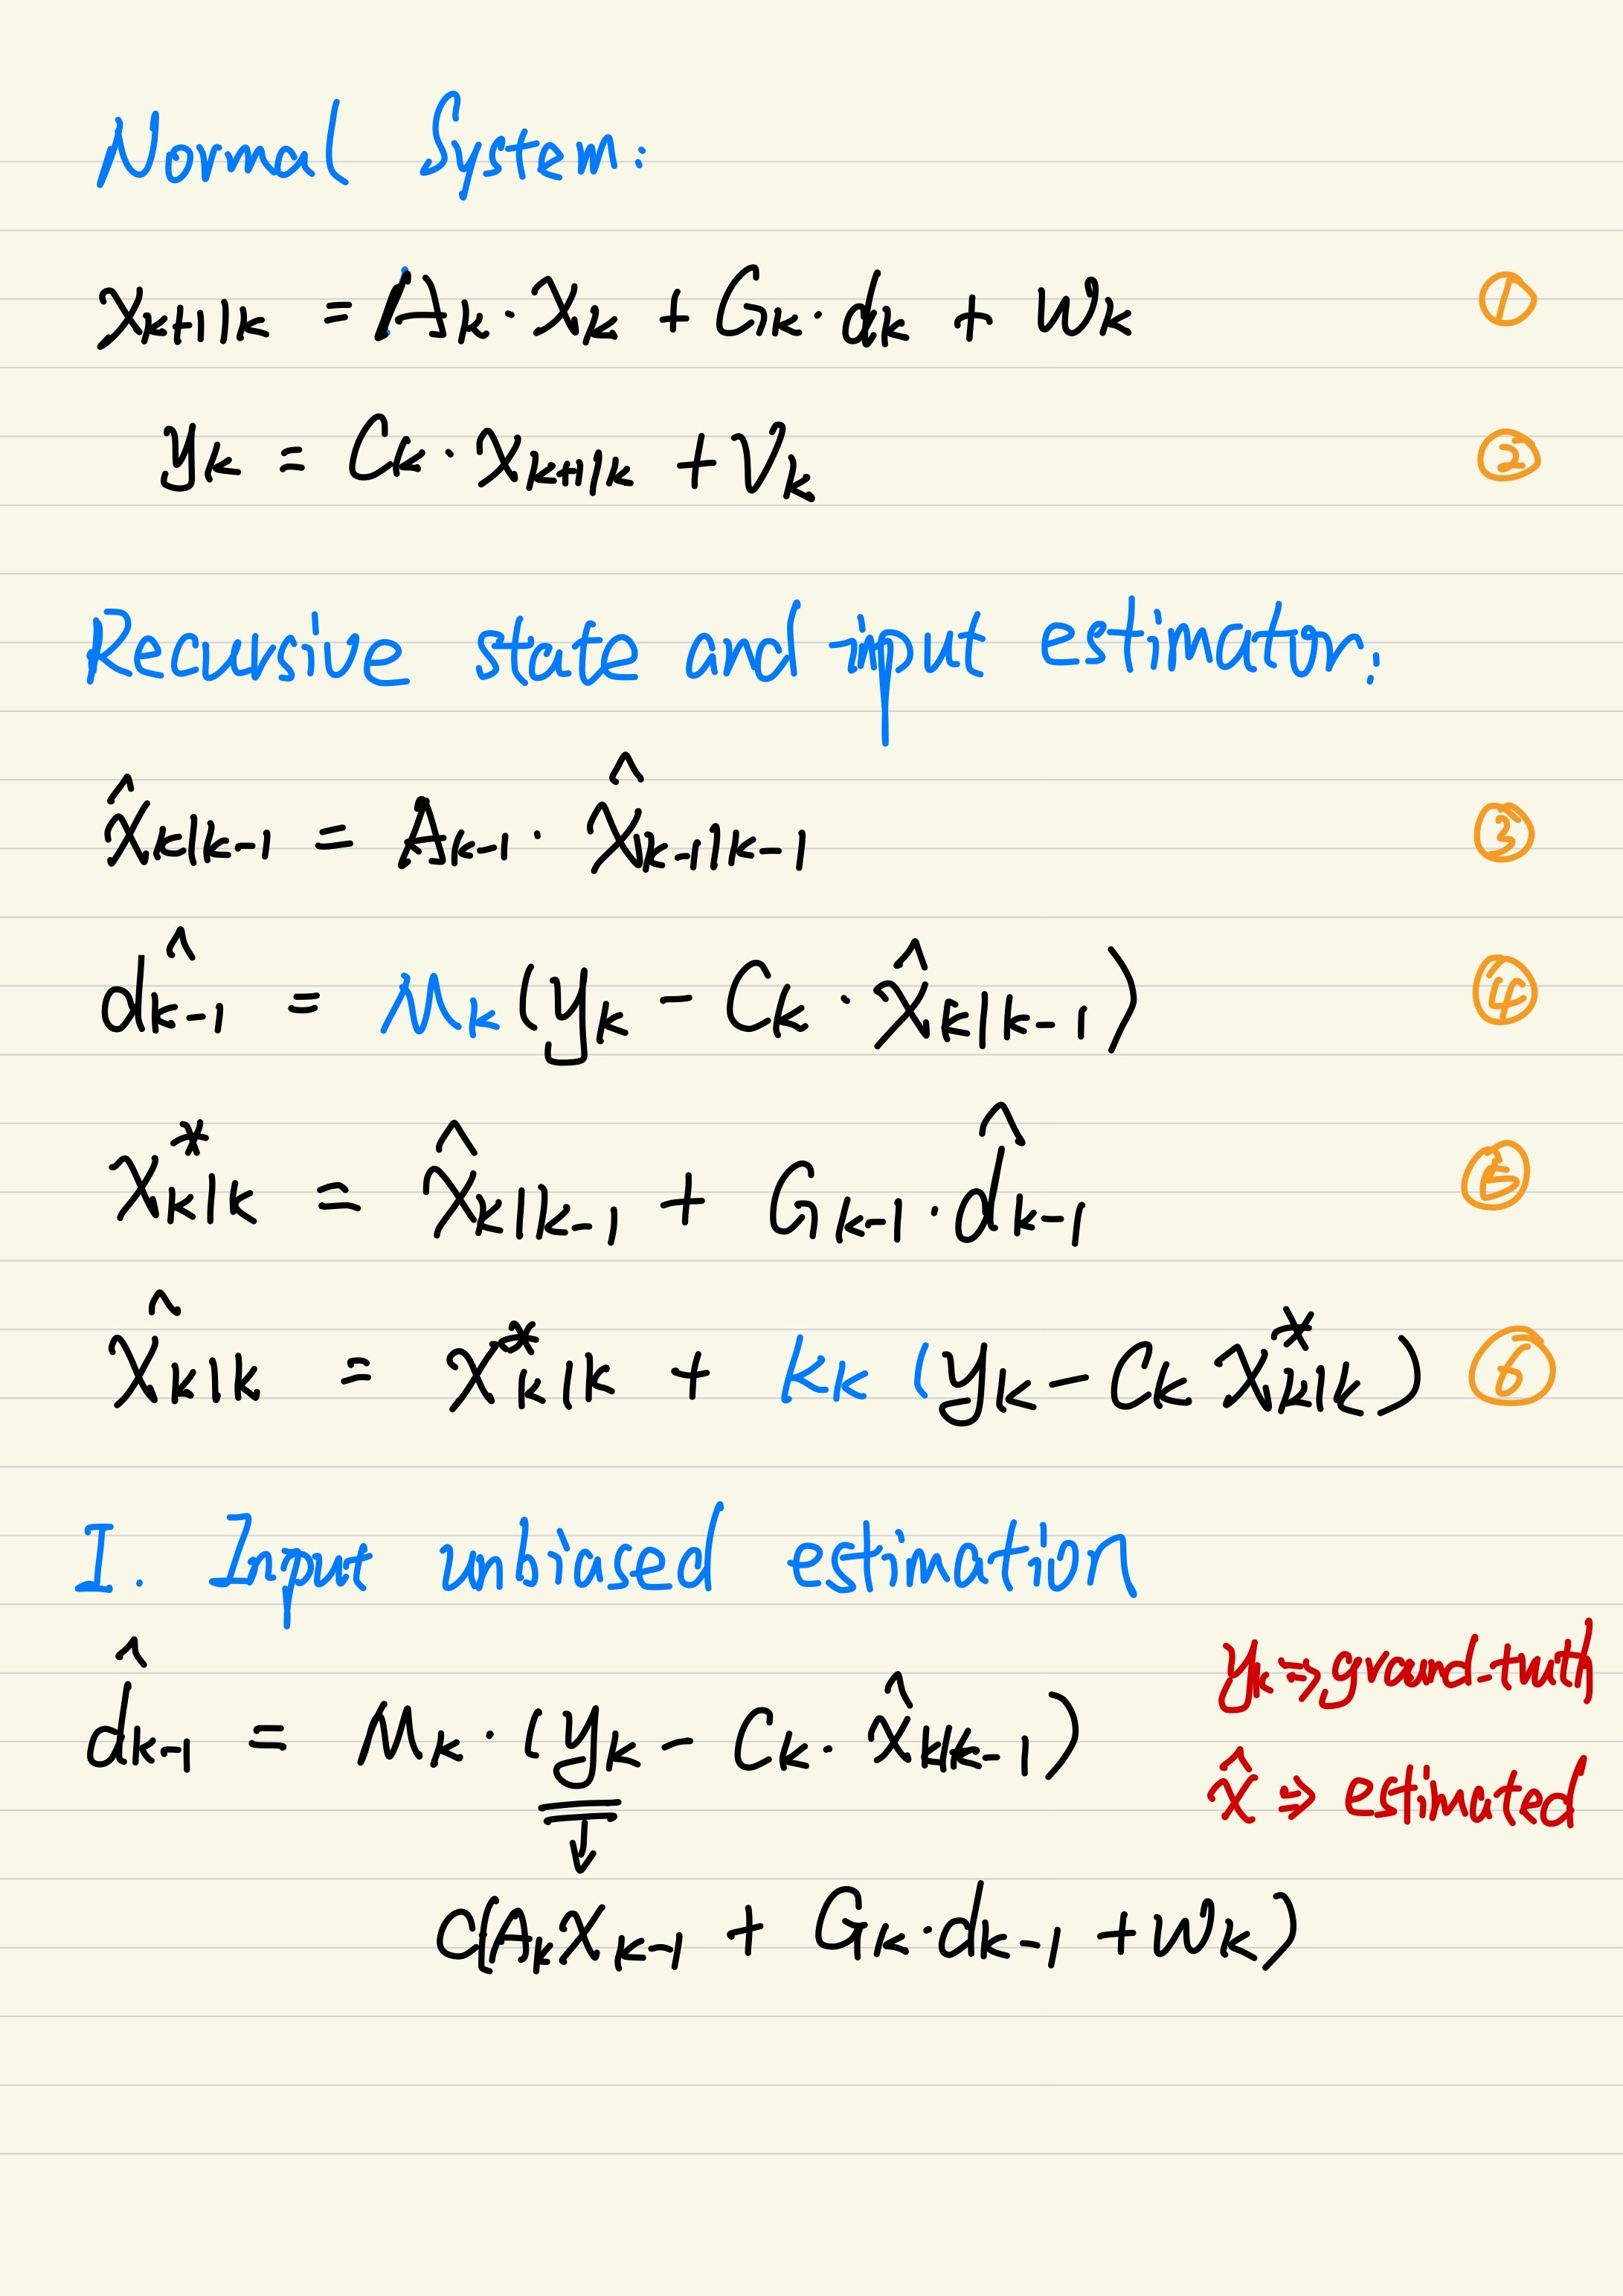 Normal System:
x_{k+1|k} = A_k · x_k + G_k · d_k + w_k ①
y_k = C_k · x_{k+1|k} + v_k ②
Recursive state and input estimator:
x̂_{k|k-1} = A_{k-1} · x̂_{k-1|k-1} ③
d̂_{k-1} = M_k (y_k - C_k · x̂_{k|k-1}) ④
x*_{k|k} = x̂_{k|k-1} + G_{k-1} · d̂_{k-1} ⑤
x̂_{k|k} = x*_{k|k} + K_k (y_k - C_k x*_{k|k}) ⑥
I. Input unbiased estimation
y_k ⇒ ground-truth
d̂_{k-1} = M_k · (y_k - C_k · x̂_{k|k-1})
x̂ ⇒ estimated
↓
C(A_k x_{k-1} + G_k · d_{k-1} + w_k)